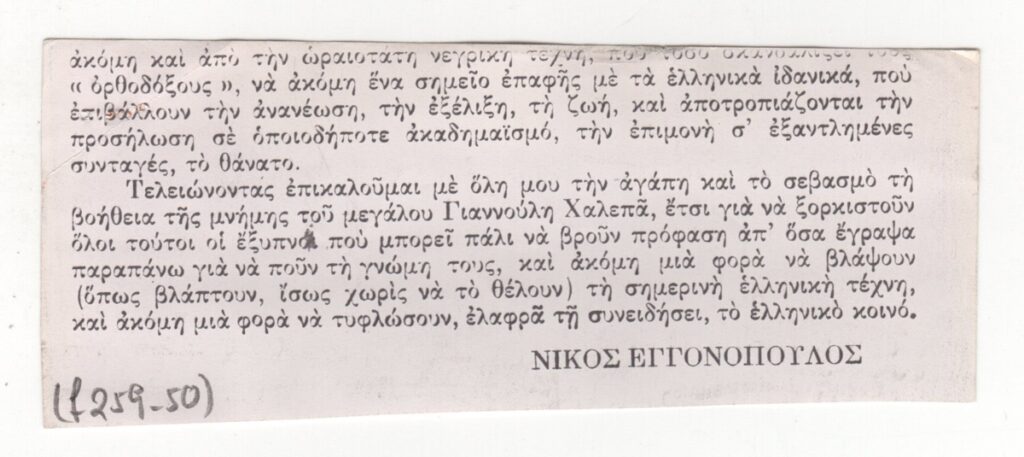 ἀκόμη καὶ ἀπὸ τὴν ὡραιοτάτη νεγρικὴ τέχνη, ποὺ τόσο σκανδαλίζει τοὺς
« ὀρθοδόξους », νὰ ἀκόμη ἕνα σημεῖο ἐπαφῆς μὲ τὰ ἑλληνικὰ ἰδανικά, ποὺ
ἐπιβάλλουν τὴν ἀνανέωση, τὴν ἐξέλιξη, τὴ ζωή, καὶ ἀποτροπιάζονται τὴν
προσήλωση σὲ ὁποιοδήποτε ἀκαδημαϊσμό, τὴν ἐπιμονὴ σ' ἐξαντλημένες
συνταγές, τὸ θάνατο.
Τελειώνοντας ἐπικαλοῦμαι μὲ ὅλη μου τὴν ἀγάπη καὶ τὸ σεβασμὸ τὴ
βοήθεια τῆς μνήμης τοῦ μεγάλου Γιαννούλη Χαλεπᾶ, ἔτσι γιὰ νὰ ξορκιστοῦν
ὅλοι τοῦτοι οἱ ἔξυπνοι ποὺ μπορεῖ πάλι νὰ βροῦν πρόφαση ἀπ' ὅσα ἔγραψα
παραπάνω γιὰ νὰ ποῦν τὴ γνώμη τους, καὶ ἀκόμη μιὰ φορὰ νὰ βλάψουν
(ὅπως βλάπτουν, ἴσως χωρὶς νὰ τὸ θέλουν) τὴ σημερινὴ ἑλληνικὴ τέχνη,
καὶ ἀκόμη μιὰ φορὰ νὰ τυφλώσουν, ἐλαφρᾷ τῇ συνειδήσει, τὸ ἑλληνικὸ κοινό.
ΝΙΚΟΣ ΕΓΓΟΝΟΠΟΥΛΟΣ
(f 259-50)